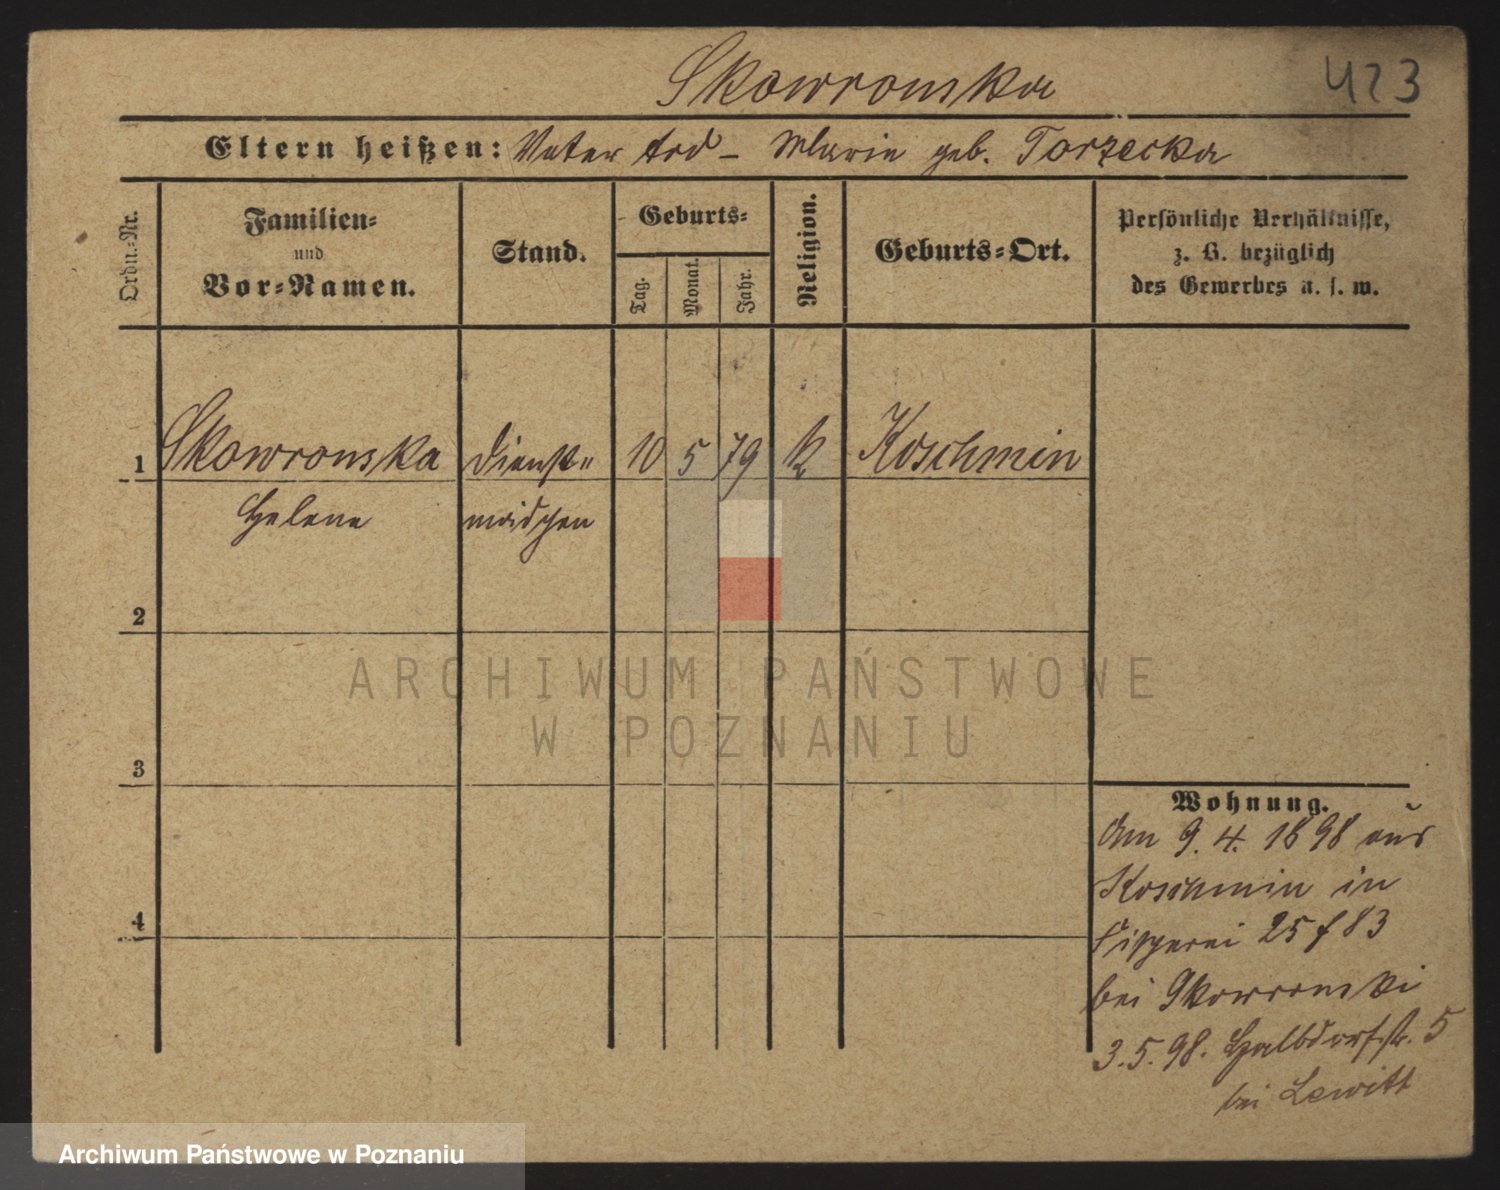 Skowronska
423
Eltern heißen: Vater tod – Marie geb. Torzecka
Ordn.-Nr.
Familien-
und
Vor-Namen.
Stand.
Geburts-
Tag.
Monat.
Jahr.
Religion.
Geburts-Ort.
Persönliche Verhältnisse,
z. B. bezüglich
des Gewerbes u. s. w.
1 Skowronska Dienst- 10 5 79 k Koschmin
Helene mädchen
2
3
4
Wohnung.
Am 9. 4. 1898 aus
Koschmin in
Fischerei 25 f 83
bei Skowronski
3.5.98. Halbdorfstr. 5
bei Lewitt
ARCHIWUM PAŃSTWOWE
W POZNANIU
Archiwum Państwowe w Poznaniu